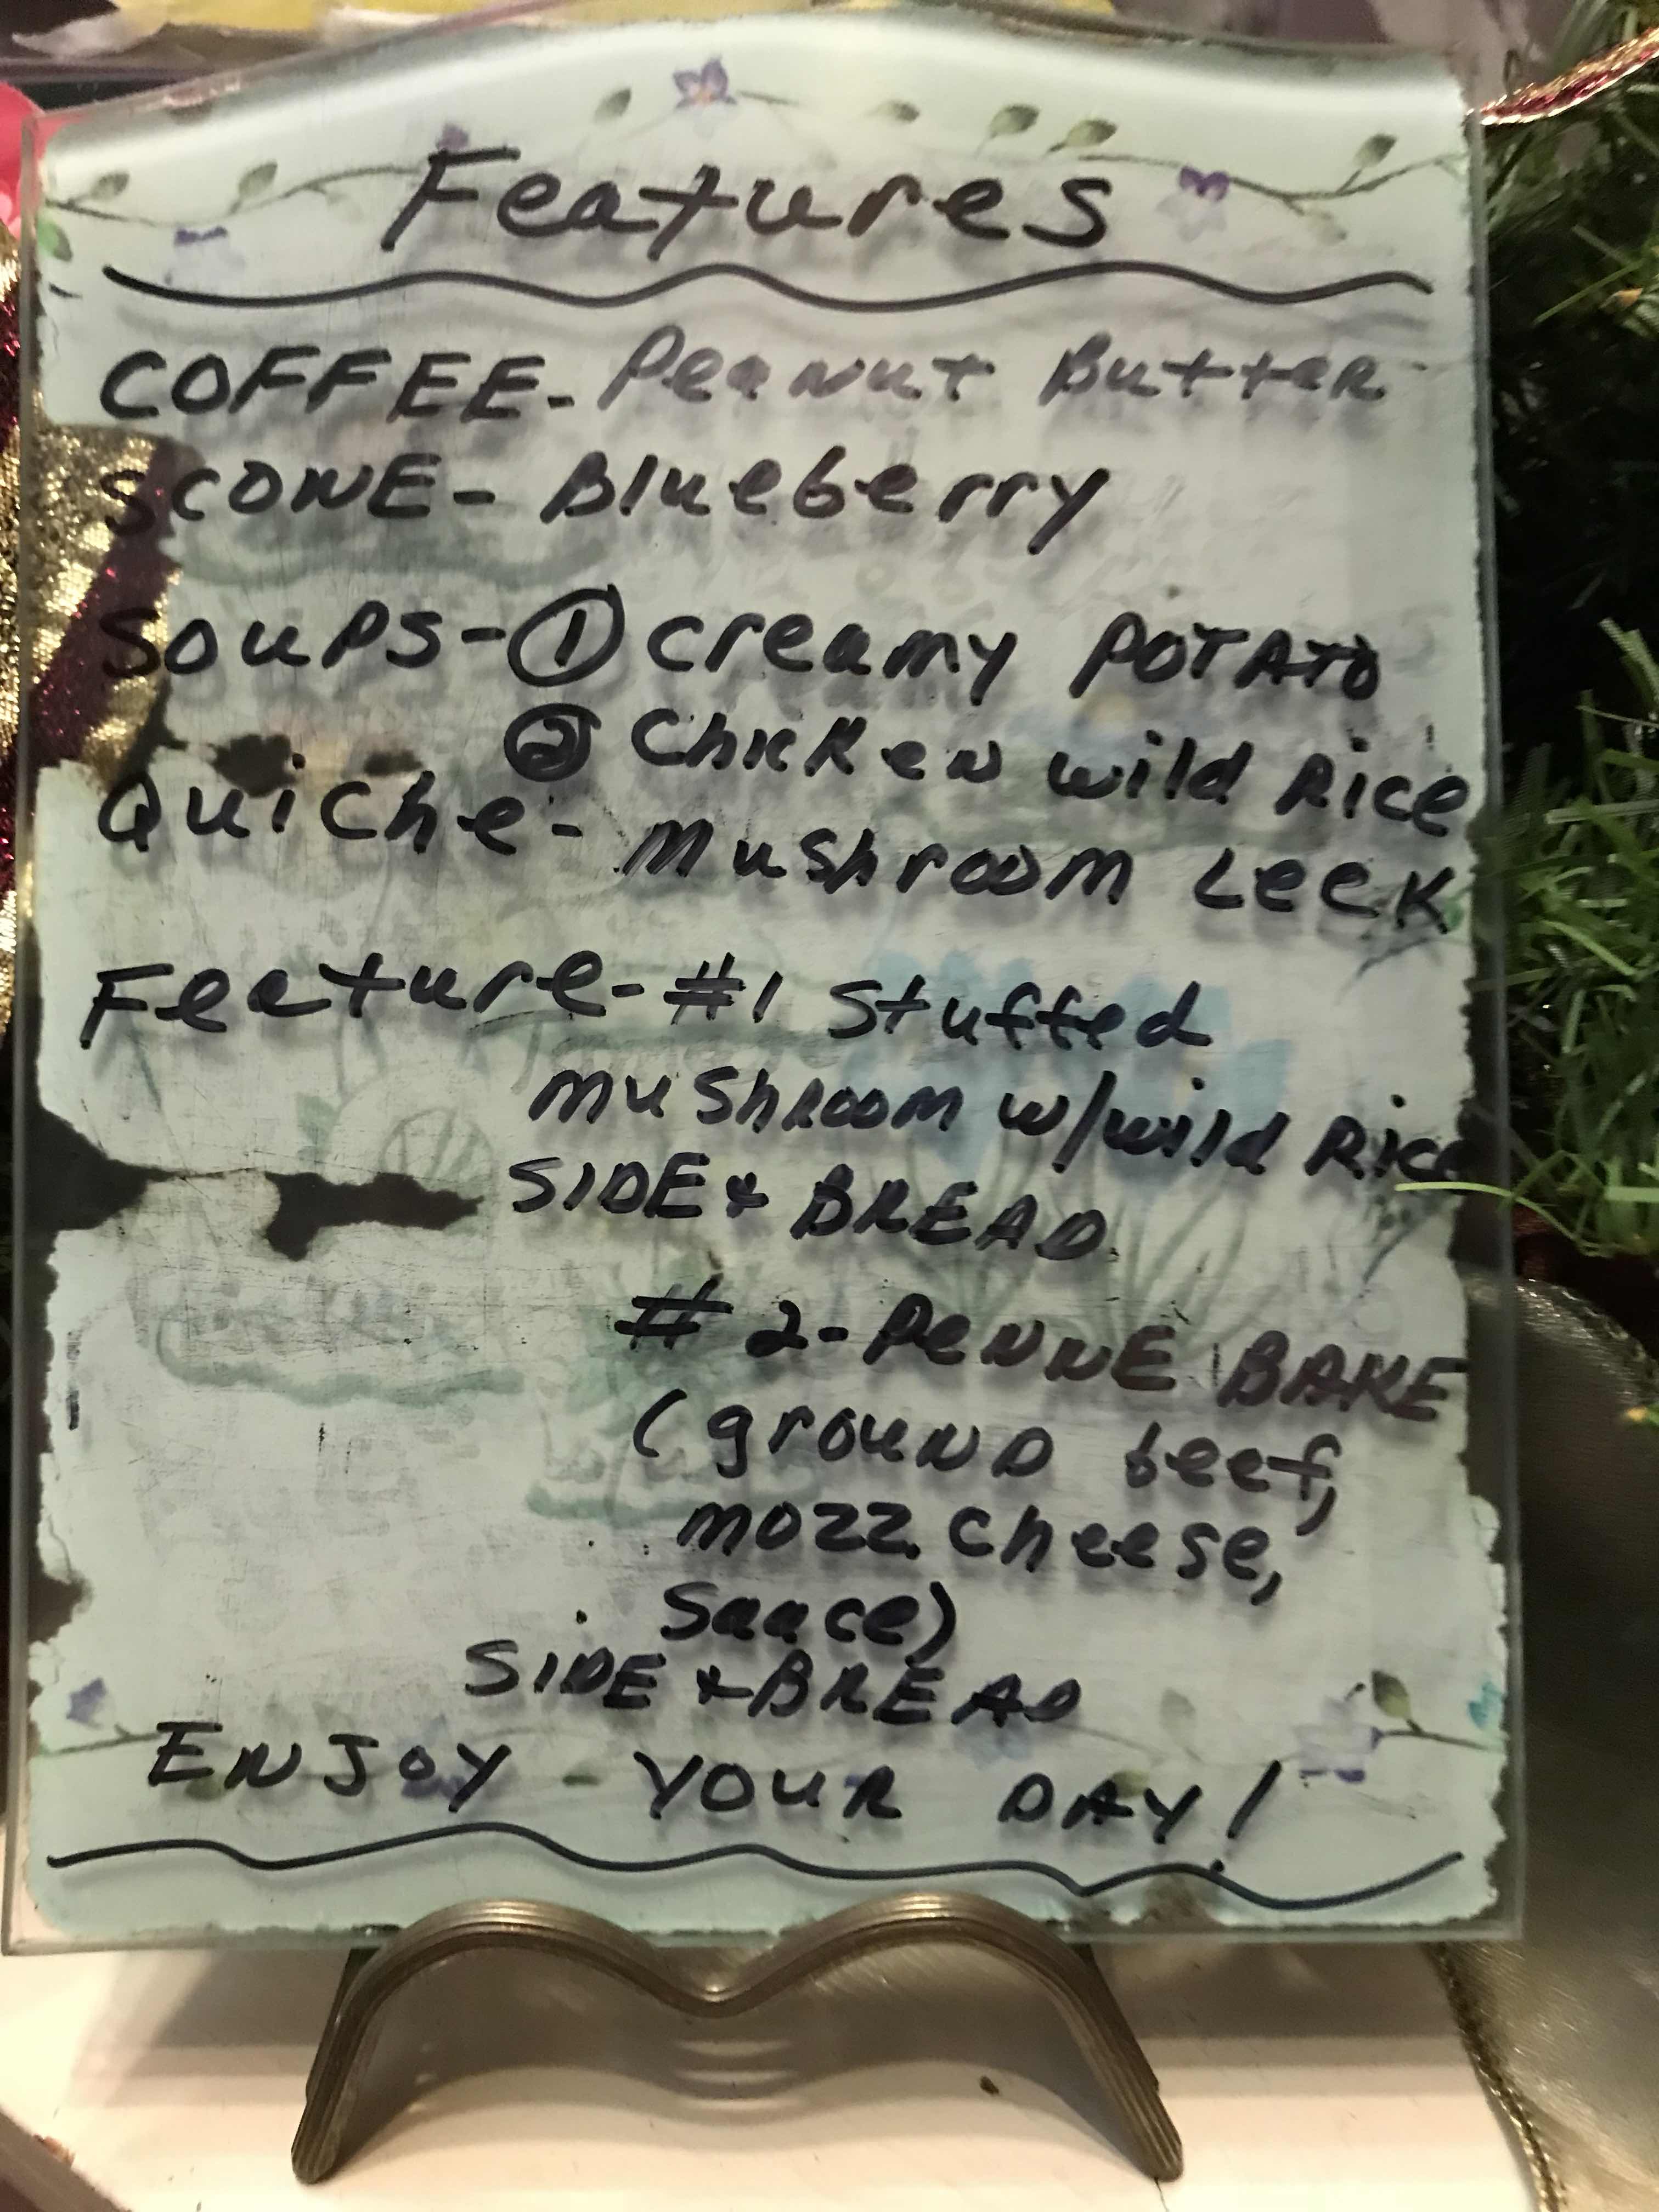 Features
COFFEE- Peanut Butter
SCONE- Blueberry
Soups- ① creamy POTATO
② Chicken wild Rice
Quiche- Mushroom Leek
Feature- #1 Stuffed
mushroom w/wild Rice
SIDE & BREAD
# 2- PENNE BAKE
(ground beef,
mozz. cheese,
Sauce)
SIDE & BREAD
ENJOY YOUR DAY!